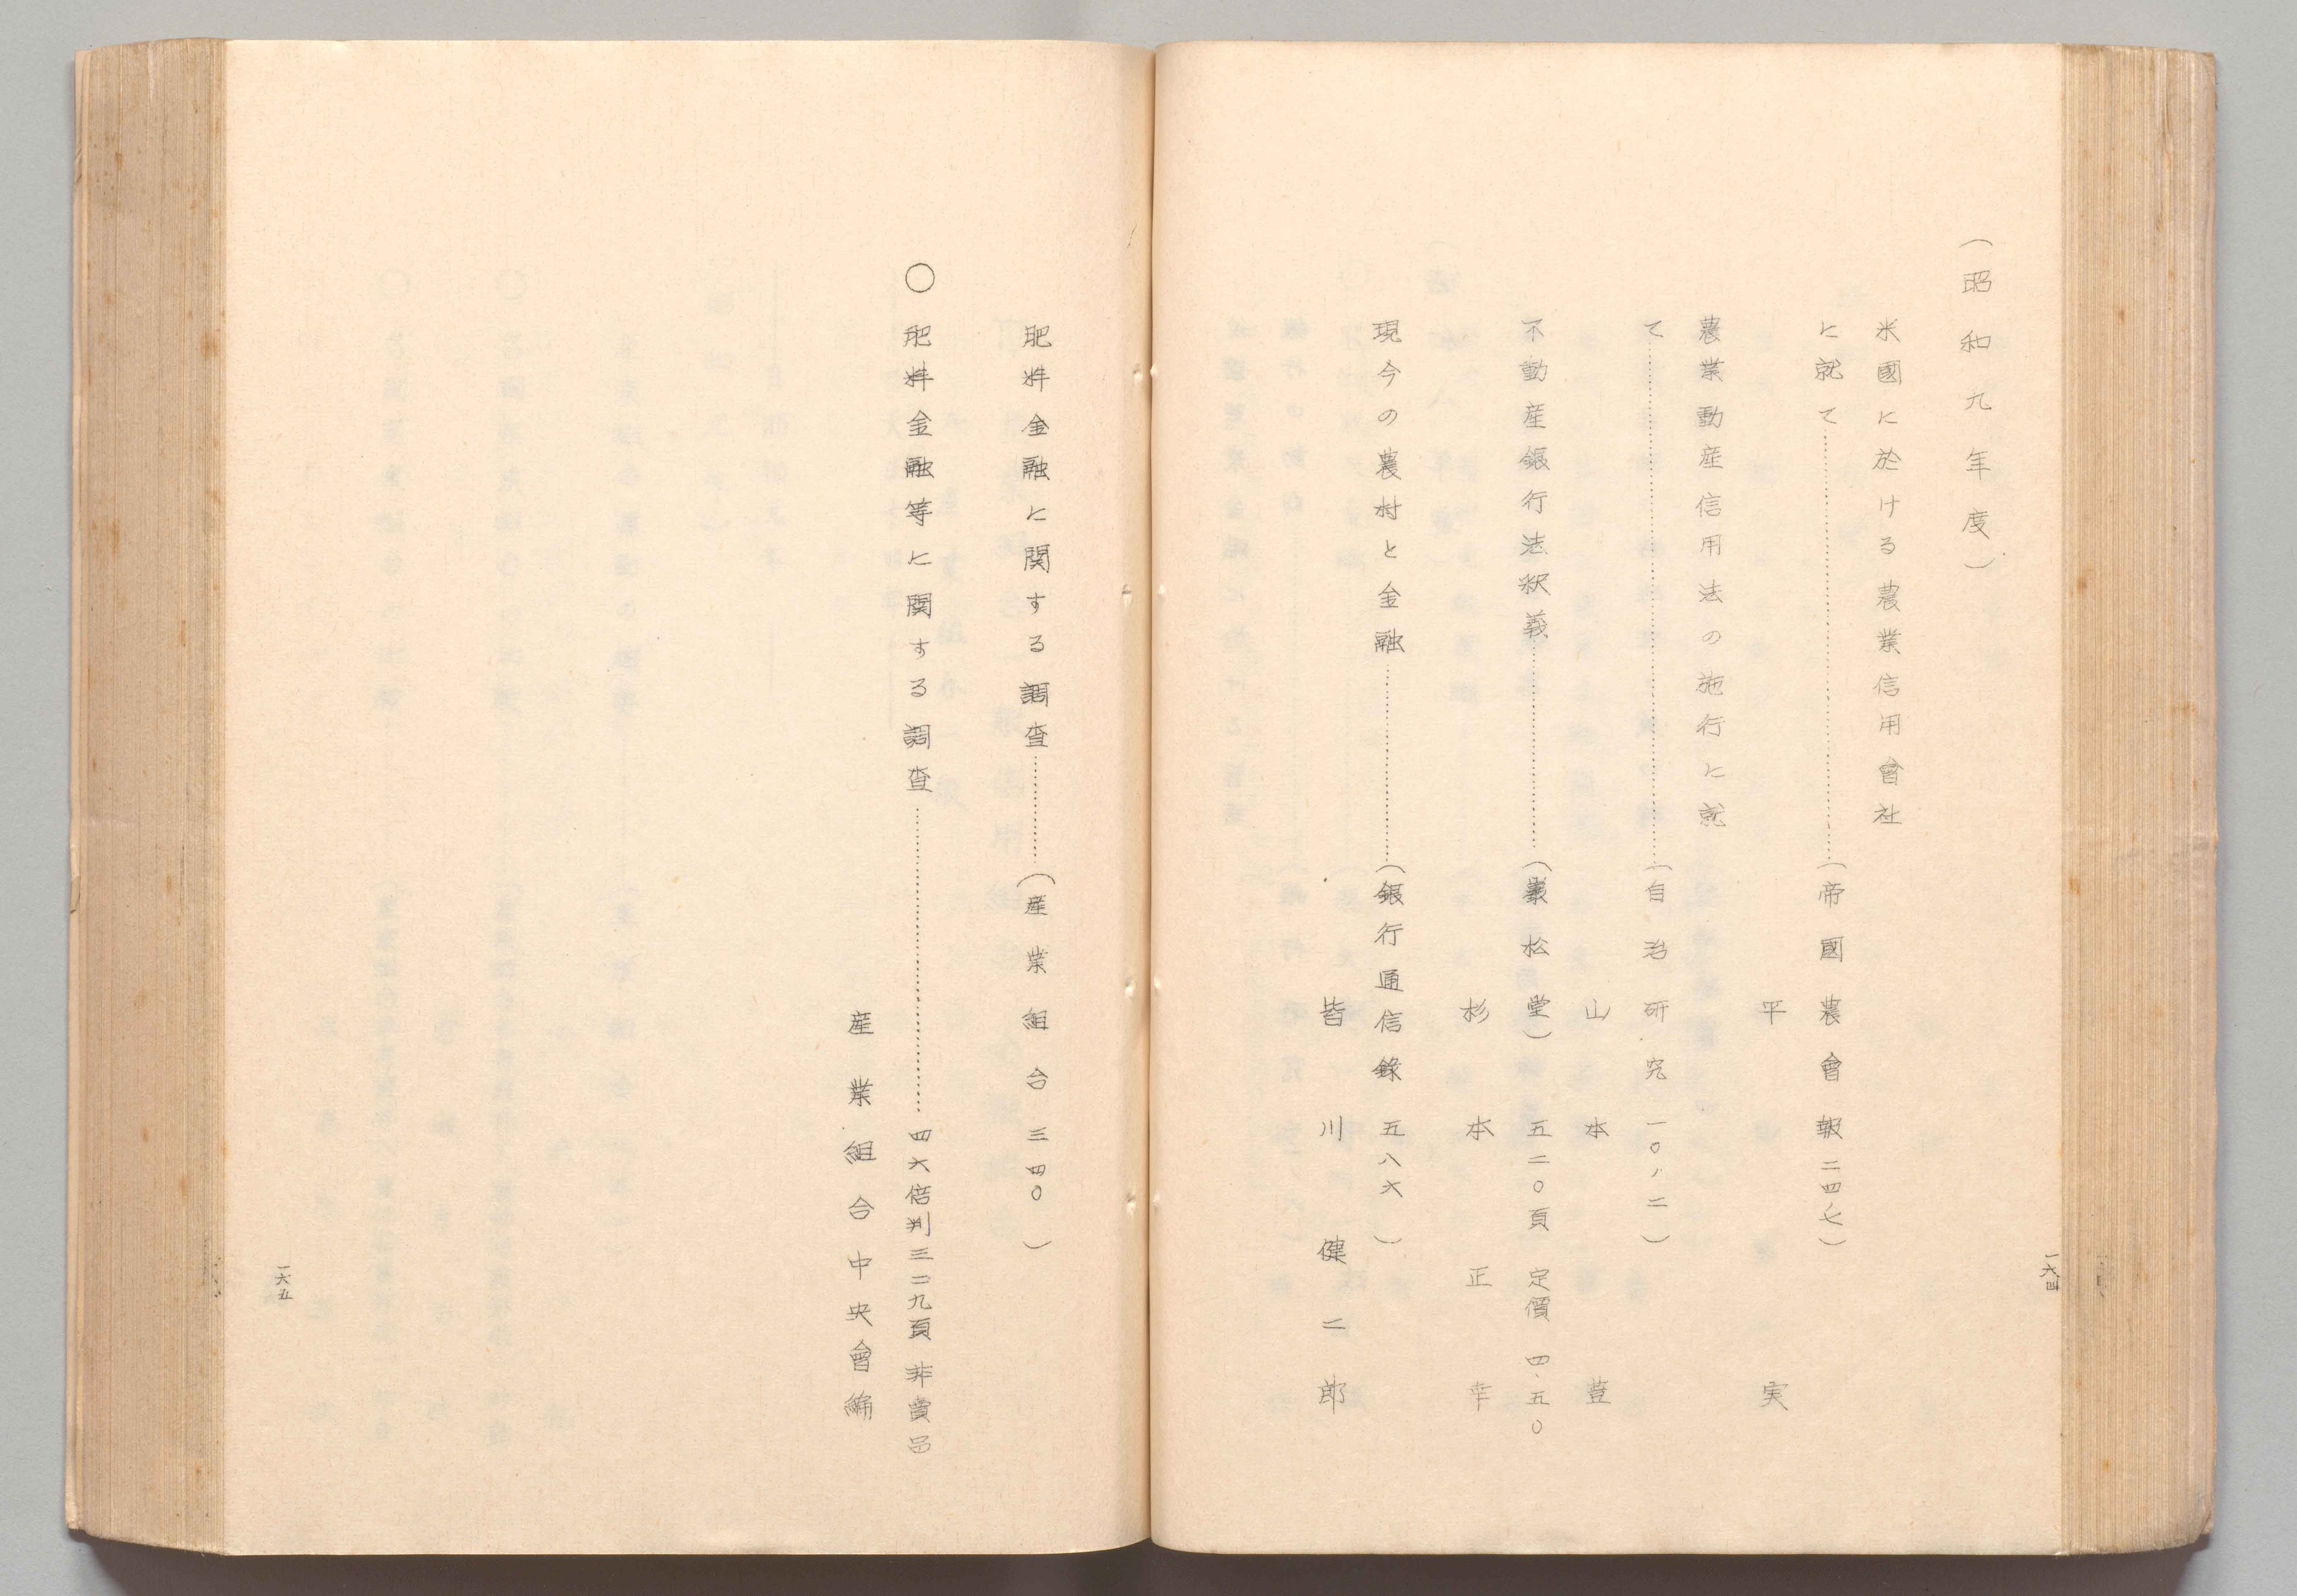 （昭和九年度）
米國に於ける農業信用會社
に就て……………（帝國農會報二四七）
平実
農業動産信用法の施行に就
て……………（自治研究一〇ノ二）
山本荁
不動産銀行法釈義……………（巌松堂）五二〇頁 定價 四.五〇
杉本正幸
現今の農村と金融……………（銀行通信錄五八六）
皆川健二郎
一六四
肥料金融に関する調査……………（産業組合三四〇）
〇肥料金融等に関する調査……………四六倍判三二九頁 非賣品
産業組合中央會編
一六五